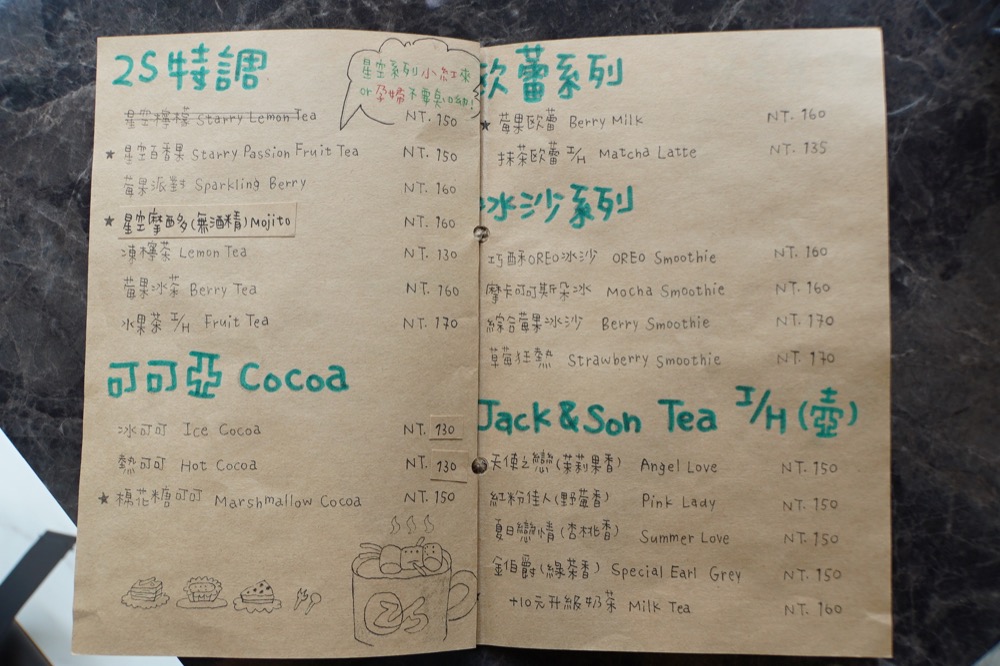 2S特調
星空系列小紅來
or孕婦不要點口幼!
星空檸檬 Starry Lemon Tea NT. 150
★ 星空百香果 Starry Passion Fruit Tea NT. 150
莓果派對 Sparkling Berry NT. 160
★ 星空摩西多(無酒精)Mojito NT. 160
凍檸茶 Lemon Tea NT. 130
莓果冰茶 Berry Tea NT. 160
水果茶 I/H Fruit Tea NT. 170
可可亞 Cocoa
冰可可 Ice Cocoa NT. 130
熱可可 Hot Cocoa NT. 130
★ 棉花糖可可 Marshmallow Cocoa NT. 150
2S
歐蕾系列
★ 莓果歐蕾 Berry Milk NT. 160
抹茶歐蕾 I/H Matcha Latte NT. 135
冰沙系列
巧酥OREO冰沙 OREO Smoothie NT. 160
摩卡可可斯朵冰 Mocha Smoothie NT. 160
綜合莓果冰沙 Berry Smoothie NT. 170
草莓狂熱 Strawberry Smoothie NT. 170
Jack&Son Tea I/H (壺)
天使之戀(茉莉果香) Angel Love NT. 150
紅粉佳人(野莓香) Pink Lady NT. 150
夏日戀情(杏桃香) Summer Love NT. 150
金伯爵(綠茶香) Special Earl Grey NT. 150
+10元升級奶茶 Milk Tea NT. 160